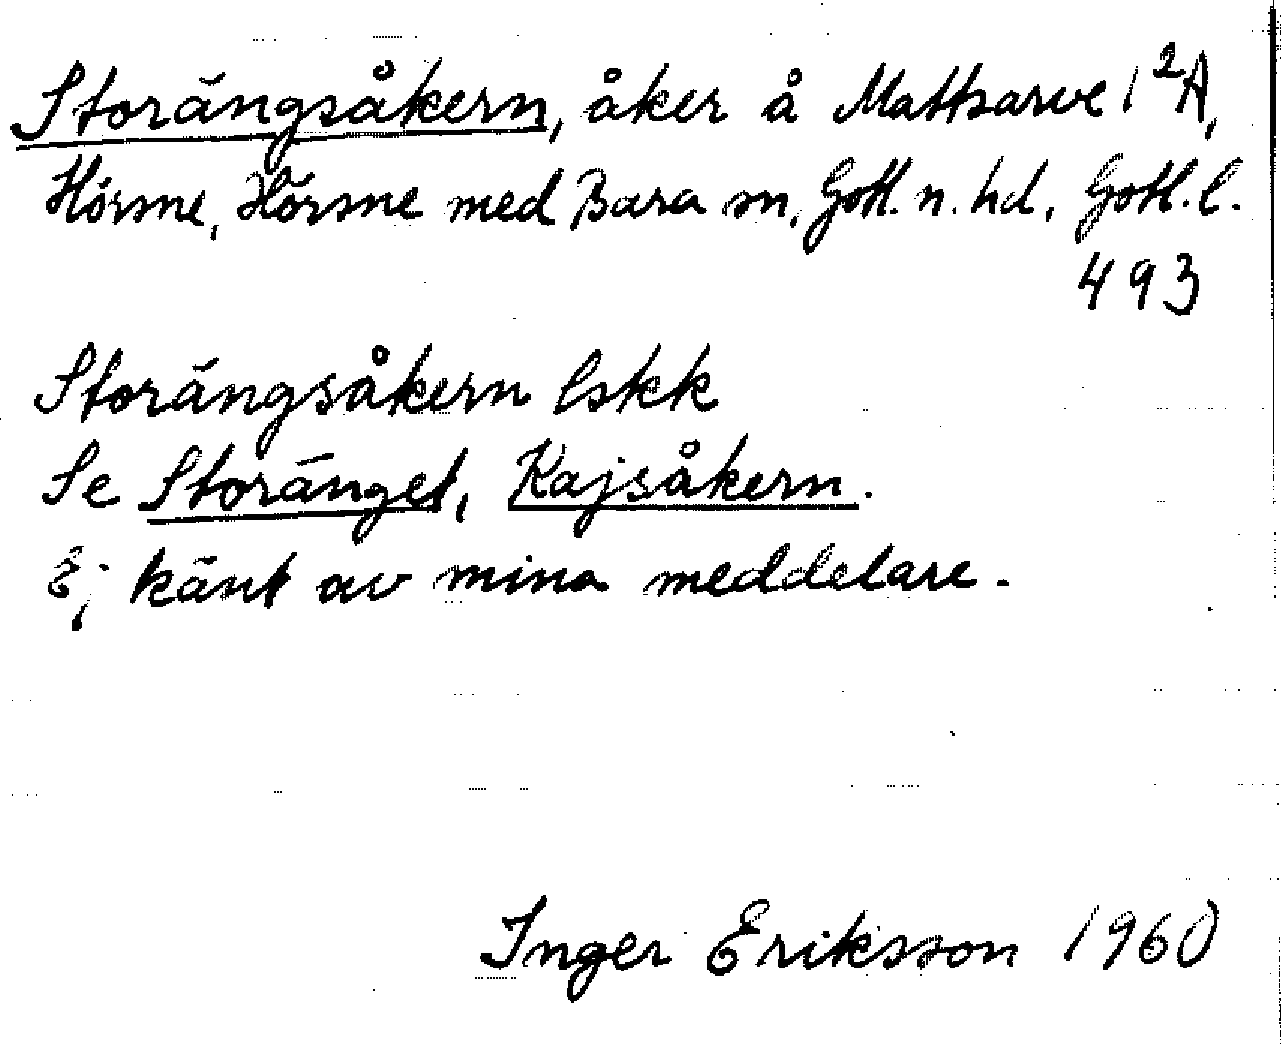 Storängsåkern, åker å Mattsarve 1 ²A,
Hörsne, Hörsne med Bara sn, Gotl. n. hd, Gotl. l.
493
Storängsåkern lskk
Se Storänget, Kajsåkern.
Ej känt av mina meddelare.
Inger Eriksson 1960